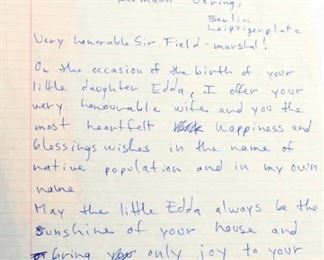 Hermann Göring,
Berlin
Leipzigerplatz
Very honorable Sir Field-marshal!
On the occasion of the birth of your
little daughter Edda, I offer your
very honourable wife and you the
most heartfelt happiness and
blessings wishes in the name of
native population and in my own
name.
May the little Edda always be the
sunshine of your house and
bring only joy to your